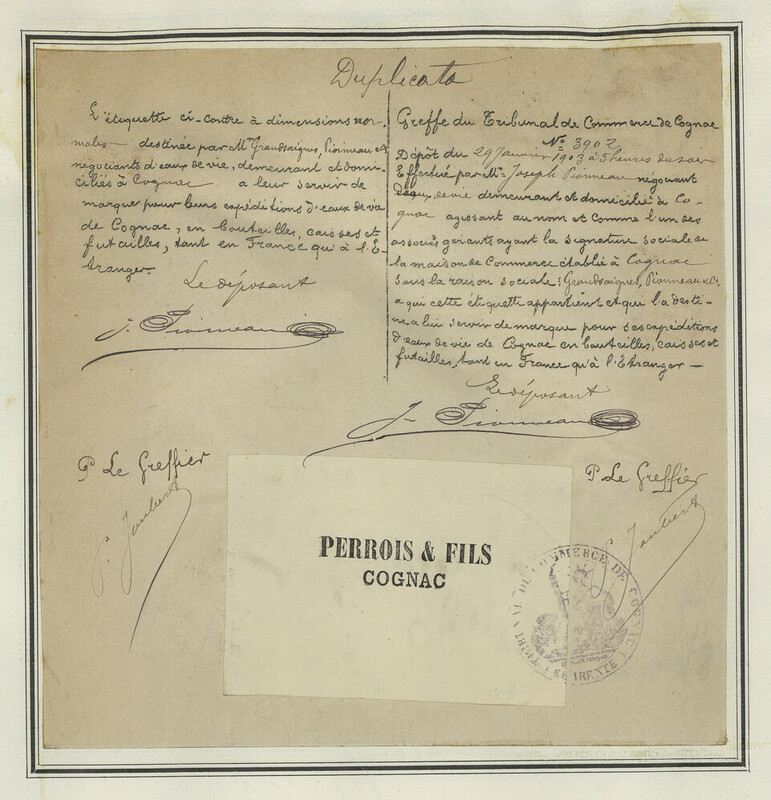 Duplicata
L'étiquette ci-contre à dimensions nor-
males — destinée par Mrs Grandsaignes, Pionneau & Co
négociants d'eaux de vie, demeurant et domi-
ciliés à Cognac a leur servir de
marque pour leurs expéditions d'eaux de vie
de Cognac, en bouteilles, caisses et
futailles, tant en France qu'à l'É-
tranger.
Le déposant
J. Pionneau
P Le Greffier
P. Jaubert
Greffe du Tribunal de Commerce de Cognac
No 3902
Dépôt du 29 Janvier 1903 à 5 heures du soir
Effectué par Mr Joseph Pionneau négociant
d'eaux de vie demeurant et domicilié à Co-
gnac agissant au nom et comme l'un des
associés gérants ayant la signature sociale de
la maison de Commerce établie à Cognac
sous la raison sociale: Grandsaignes, Pionneau & Co
a qui cette étiquette appartient et qui la desti-
ne a lui servir de marque pour ses expéditions
d'eaux de vie de Cognac en bouteilles, caisses et
futailles, tant en France qu'à l'Étranger —
Le déposant
J. Pionneau
P Le Greffier
P. Jaubert
PERROIS & FILS
COGNAC
TRIBUNAL DE COMMERCE DE COGNAC
CHARENTE